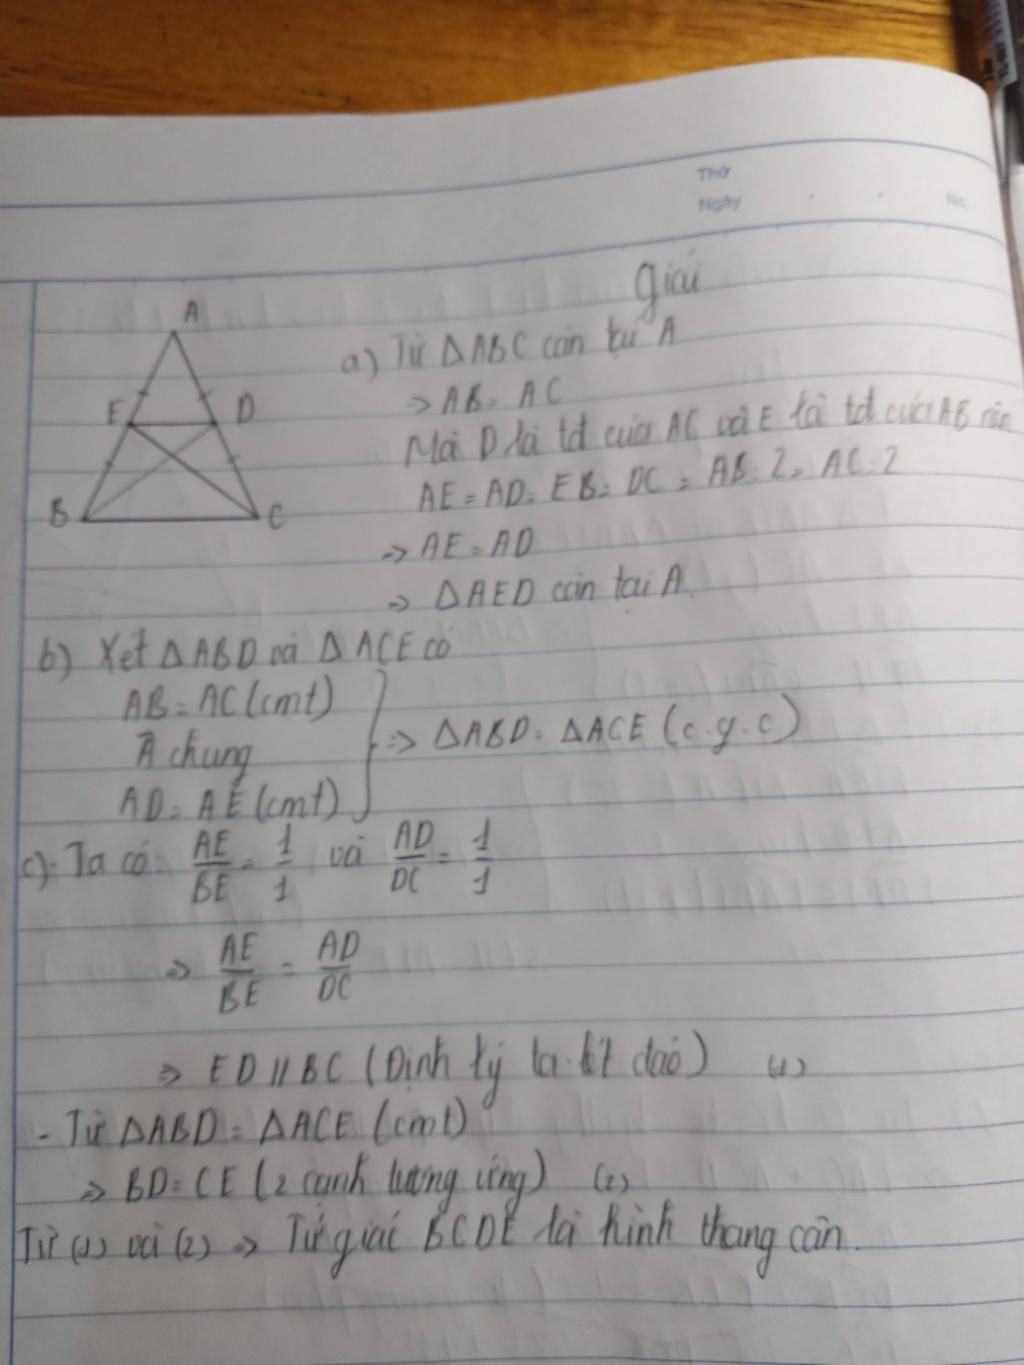 Thứ
Ngày . . No.
Giải
A
E D
B C
a) Từ ΔABC cân tại A
=> AB = AC
Mà D là tđ của AC và E là tđ của AB nên
AE = AD = EB = DC = AB : 2 = AC : 2
=> AE = AD
=> ΔAED cân tại A.
b) Xét ΔABD và ΔACE có
AB = AC (cmt)
Â chung
AD = AE (cmt)
=> ΔABD = ΔACE (c.g.c)
c) Ta có: AE/BE = 1/1 và AD/DC = 1/1
=> AE/BE = AD/DC
=> ED // BC (Định lý ta-lét đảo) (1)
- Từ ΔABD = ΔACE (cmt)
=> BD = CE (2 cạnh tương ứng) (2)
Từ (1) và (2) => Tứ giác BCDE là hình thang cân.